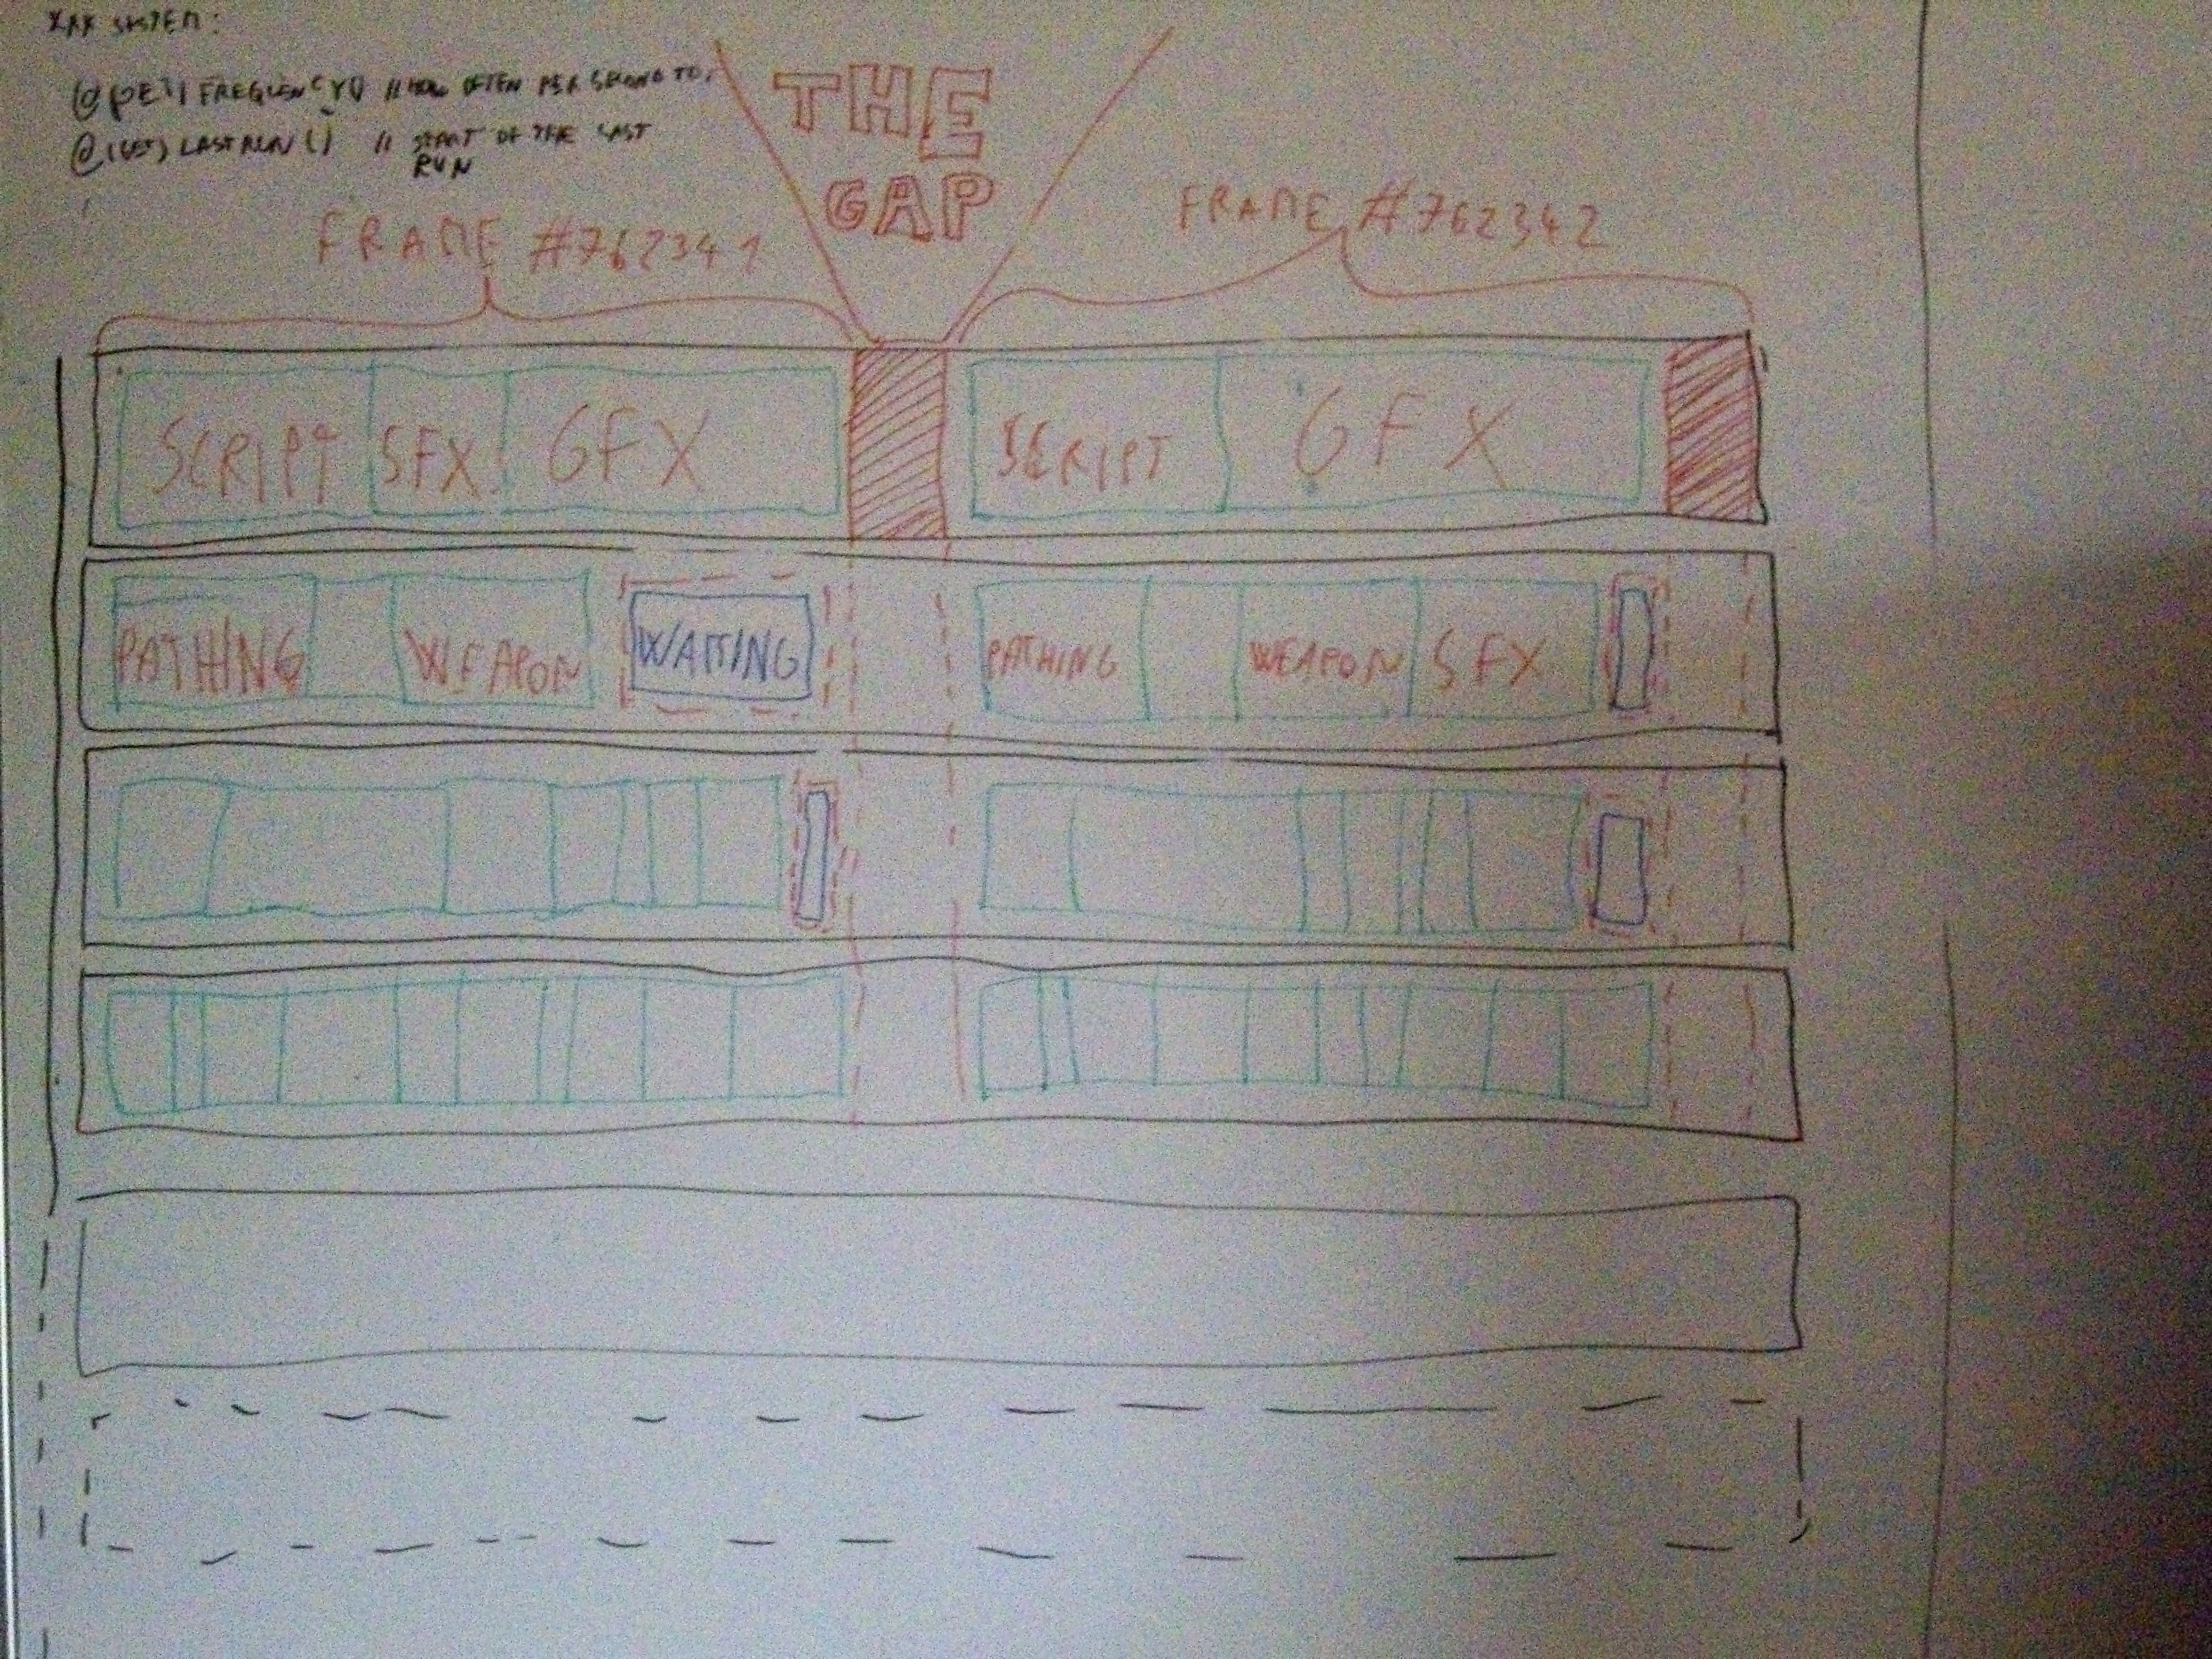 XXX SYSTEM:
FREQUENCY() // HOW OFTEN PER SECOND TO
@(GET) LASTRUN() // START OF THE LAST
RUN
THE
GAP
FRAME #762341
FRAME #762342
SCRIPT SFX GFX
SCRIPT GFX
PATHING WEAPON WAITING
PATHING WEAPON SFX